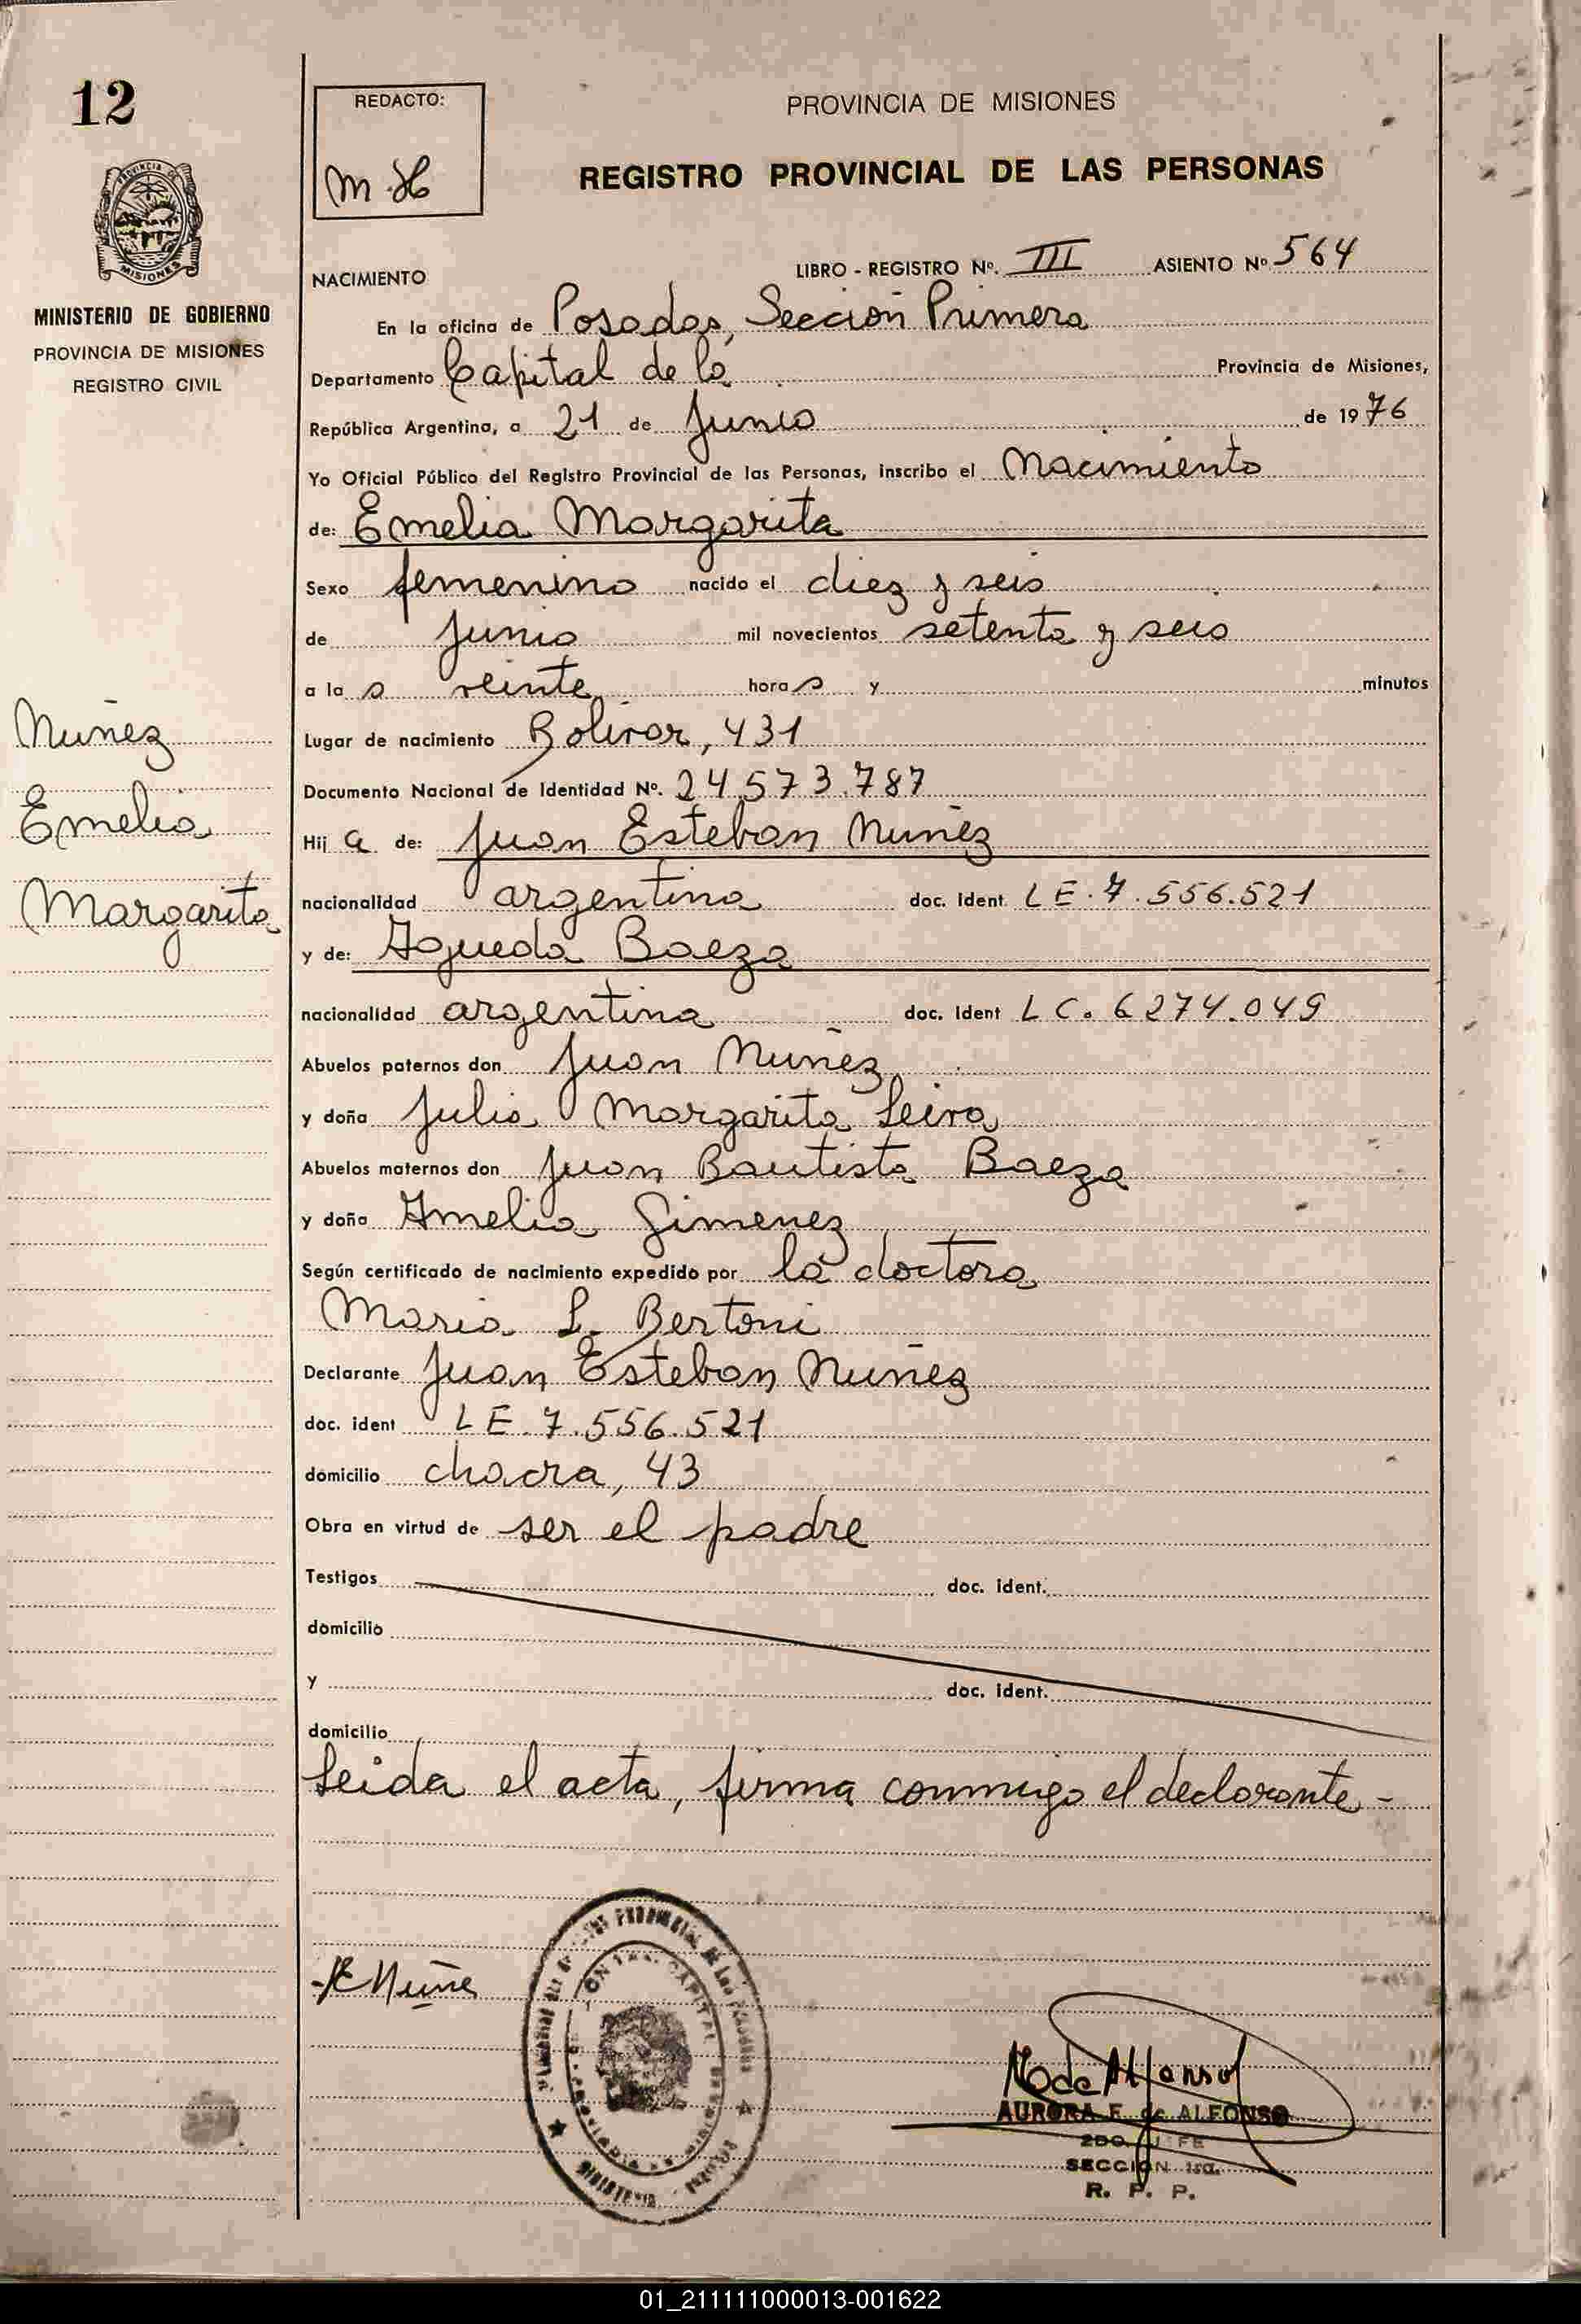 12
REDACTO:
M.H
PROVINCIA DE MISIONES
REGISTRO PROVINCIAL DE LAS PERSONAS
PROVINCIA DE
MISIONES
MINISTERIO DE GOBIERNO
PROVINCIA DE MISIONES
REGISTRO CIVIL
NACIMIENTO LIBRO - REGISTRO Nº. III ASIENTO Nº 564
En la oficina de Posadas, Sección Primera
Departamento Capital de la Provincia de Misiones,
República Argentina, a 21 de Junio de 1976
Yo Oficial Público del Registro Provincial de las Personas, inscribo el Nacimiento
de: Emelia Margarita
Sexo femenino nacido el diez y seis
de Junio mil novecientos setenta y seis
a la s veinte hora s y minutos
Lugar de nacimiento Bolivar, 431
Documento Nacional de Identidad Nº. 24.573.787
Hij a de: Juan Esteban Nuñez
nacionalidad argentina doc. ident LE.7.556.521
y de: Agueda Baeza
nacionalidad argentina doc. ident LC. 6274.049
Abuelos paternos don Juan Nuñez
y doña Julia Margarita Leiva
Abuelos maternos don Juan Bautista Baeza
y doña Amelia Gimenez
Según certificado de nacimiento expedido por la doctora
Maria L. Bertoni
Declarante Juan Esteban Nuñez
doc. ident LE.7.556.521
domicilio chacra, 43
Obra en virtud de ser el padre
Testigos doc. ident.
domicilio
y doc. ident.
domicilio
Leida el acta, firma conmigo el declarante -
Nuñez
Emelia
Margarita
JE Nuñe
CAPITAL
de Alfonso
AURORA F. de ALFONSO
2DO. JEFE
SECCION 1ra.
R. P. P.
01_211111000013-001622